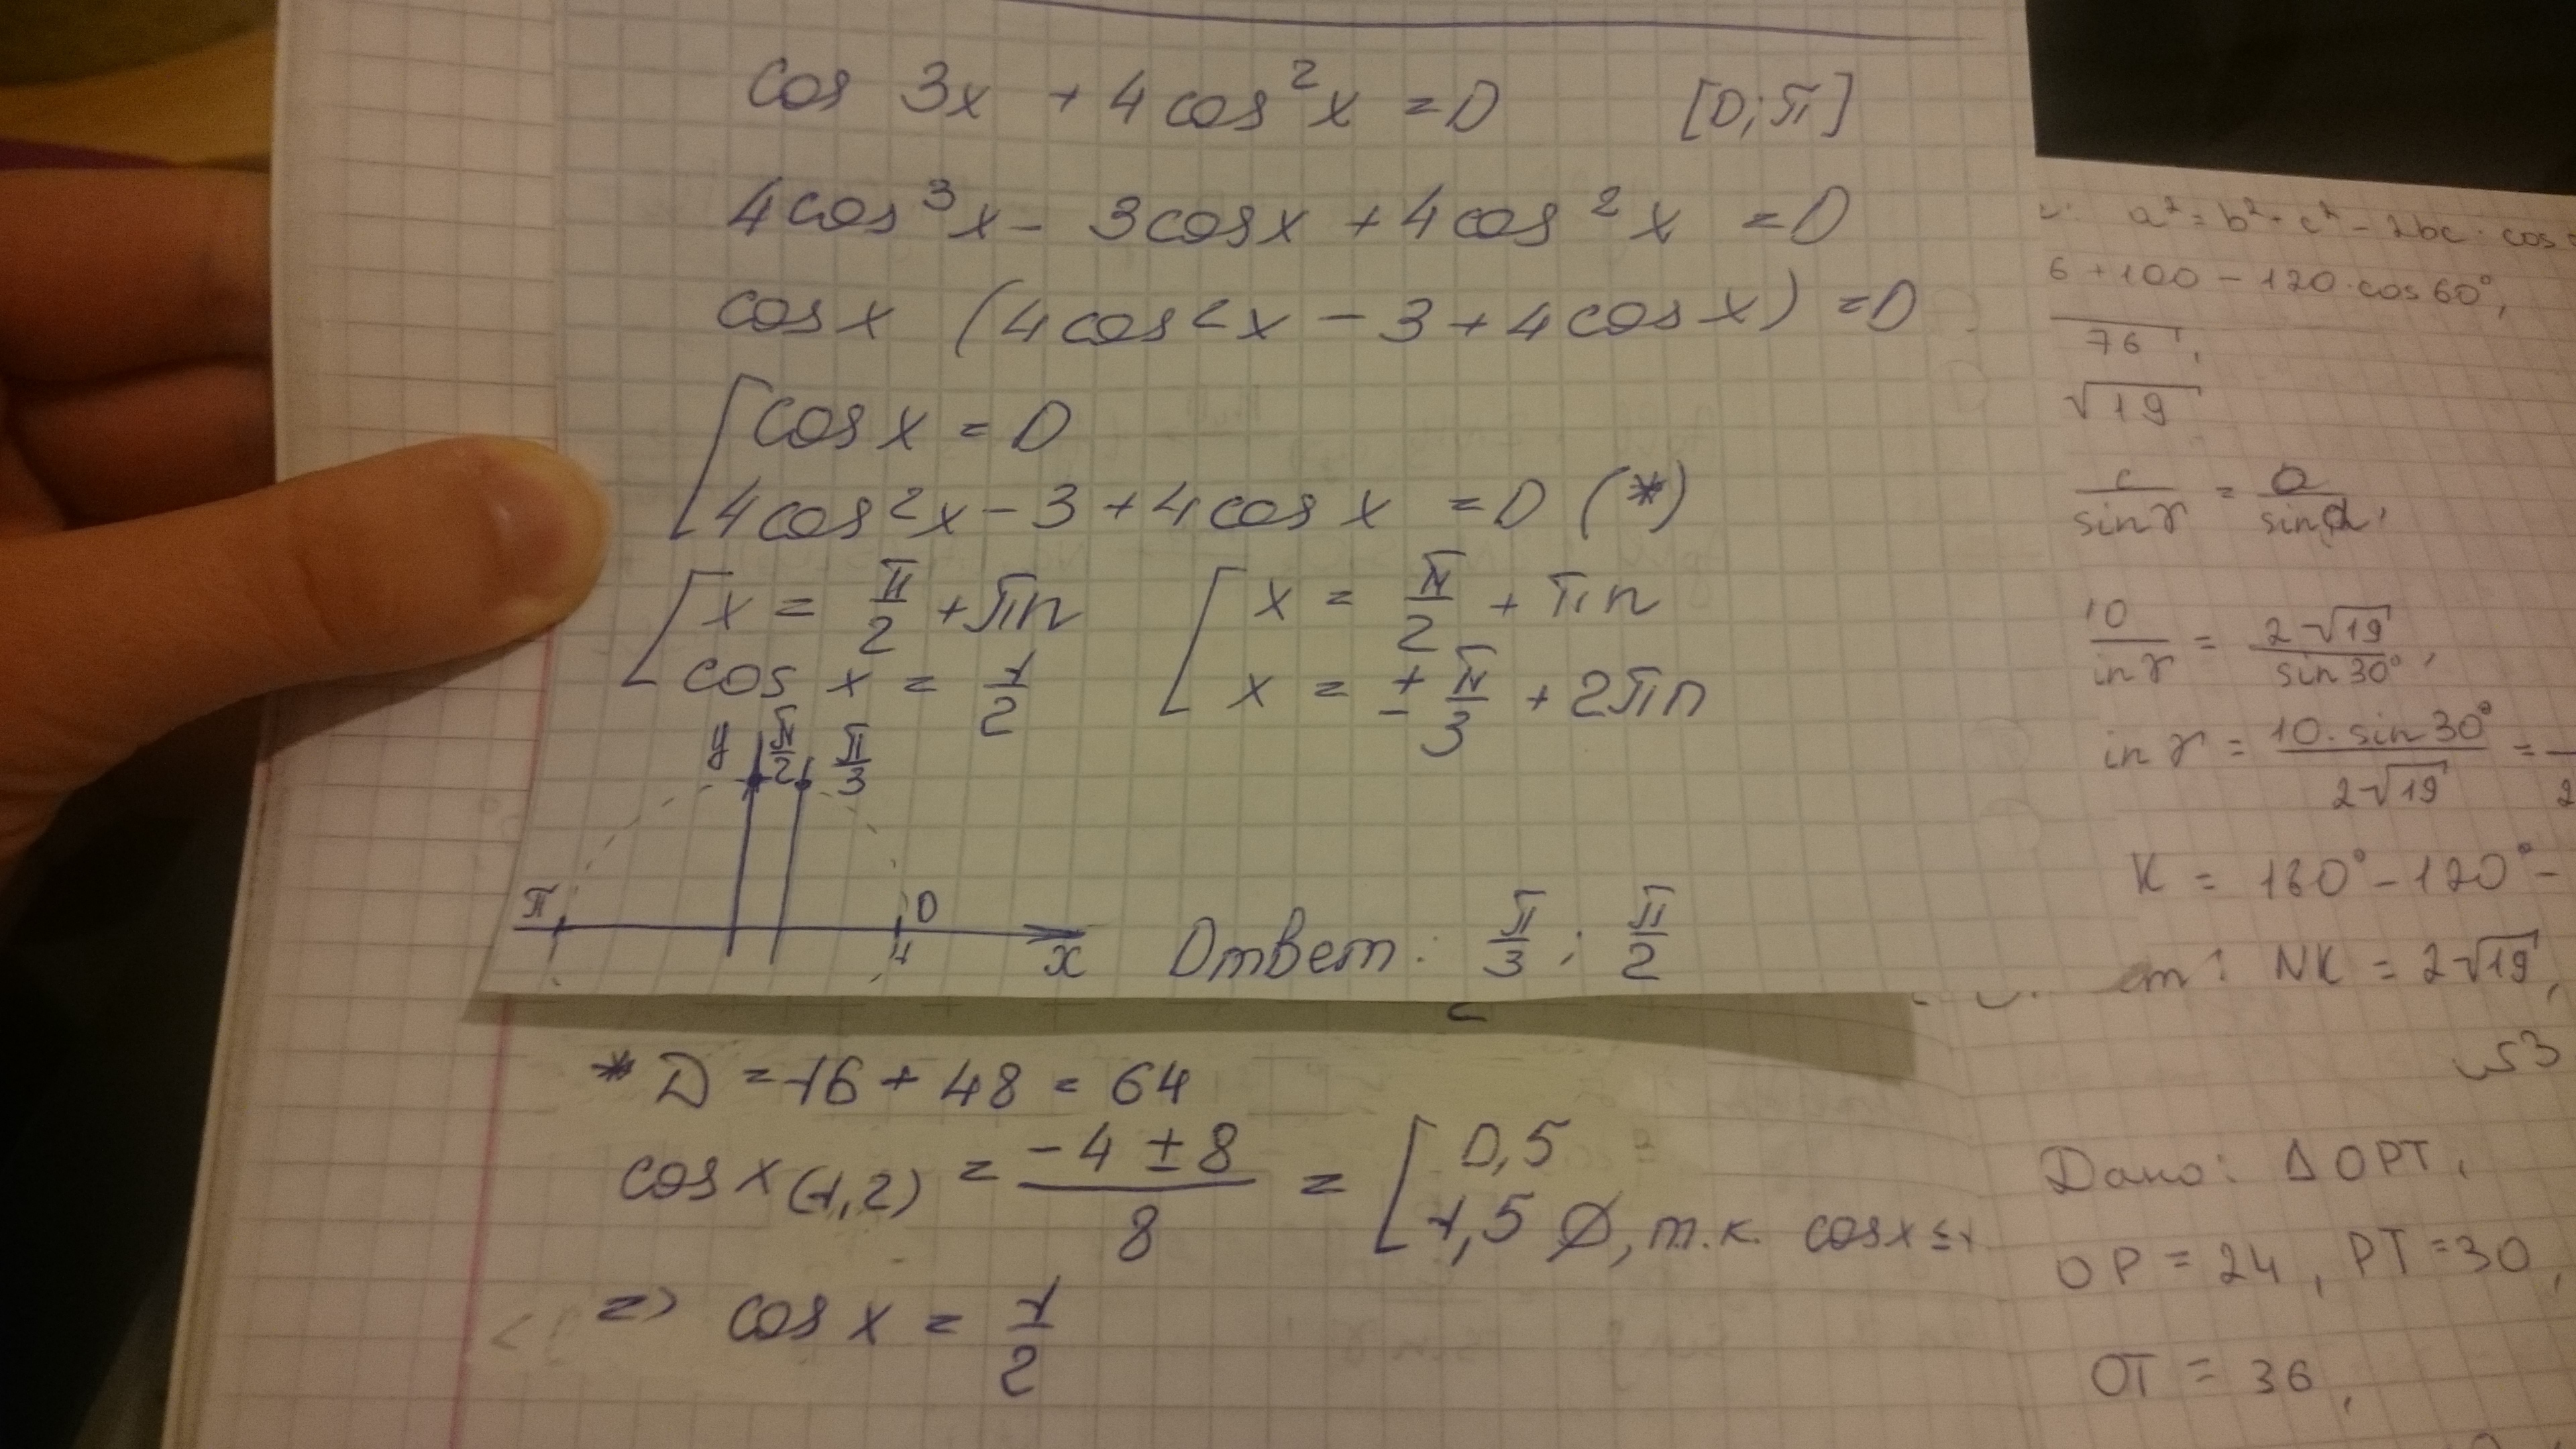 cos 3x + 4cos²x = 0 [0; π]
4cos³x - 3cosx + 4cos²x = 0
cosx (4cos²x - 3 + 4cosx) = 0
cosx = 0
4cos²x - 3 + 4cosx = 0 (*)
x = π/2 + πn
cos x = 1/2
x = π/2 + πn
x = ± π/3 + 2πn
y π/2 π/3
π 0
1
x
Ответ: π/3; π/2
* D = 16 + 48 = 64
cosx (1,2) = (-4 ± 8)/8 = [ 0,5
1,5 ∅, т.к. cosx ≤ 1
=> cosx = 1/2
a² = b² + c² - 2bc · cos
6 + 100 - 120 · cos60°,
76,
√19
c/sinγ = a/sinα,
10/inγ = 2√19/sin30°,
inγ = 10·sin30°/2√19 =
K = 180° - 120° -
ет: NK = 2√19,
№3
Дано: ΔOPT,
OP = 24, PT = 30,
OT = 36,